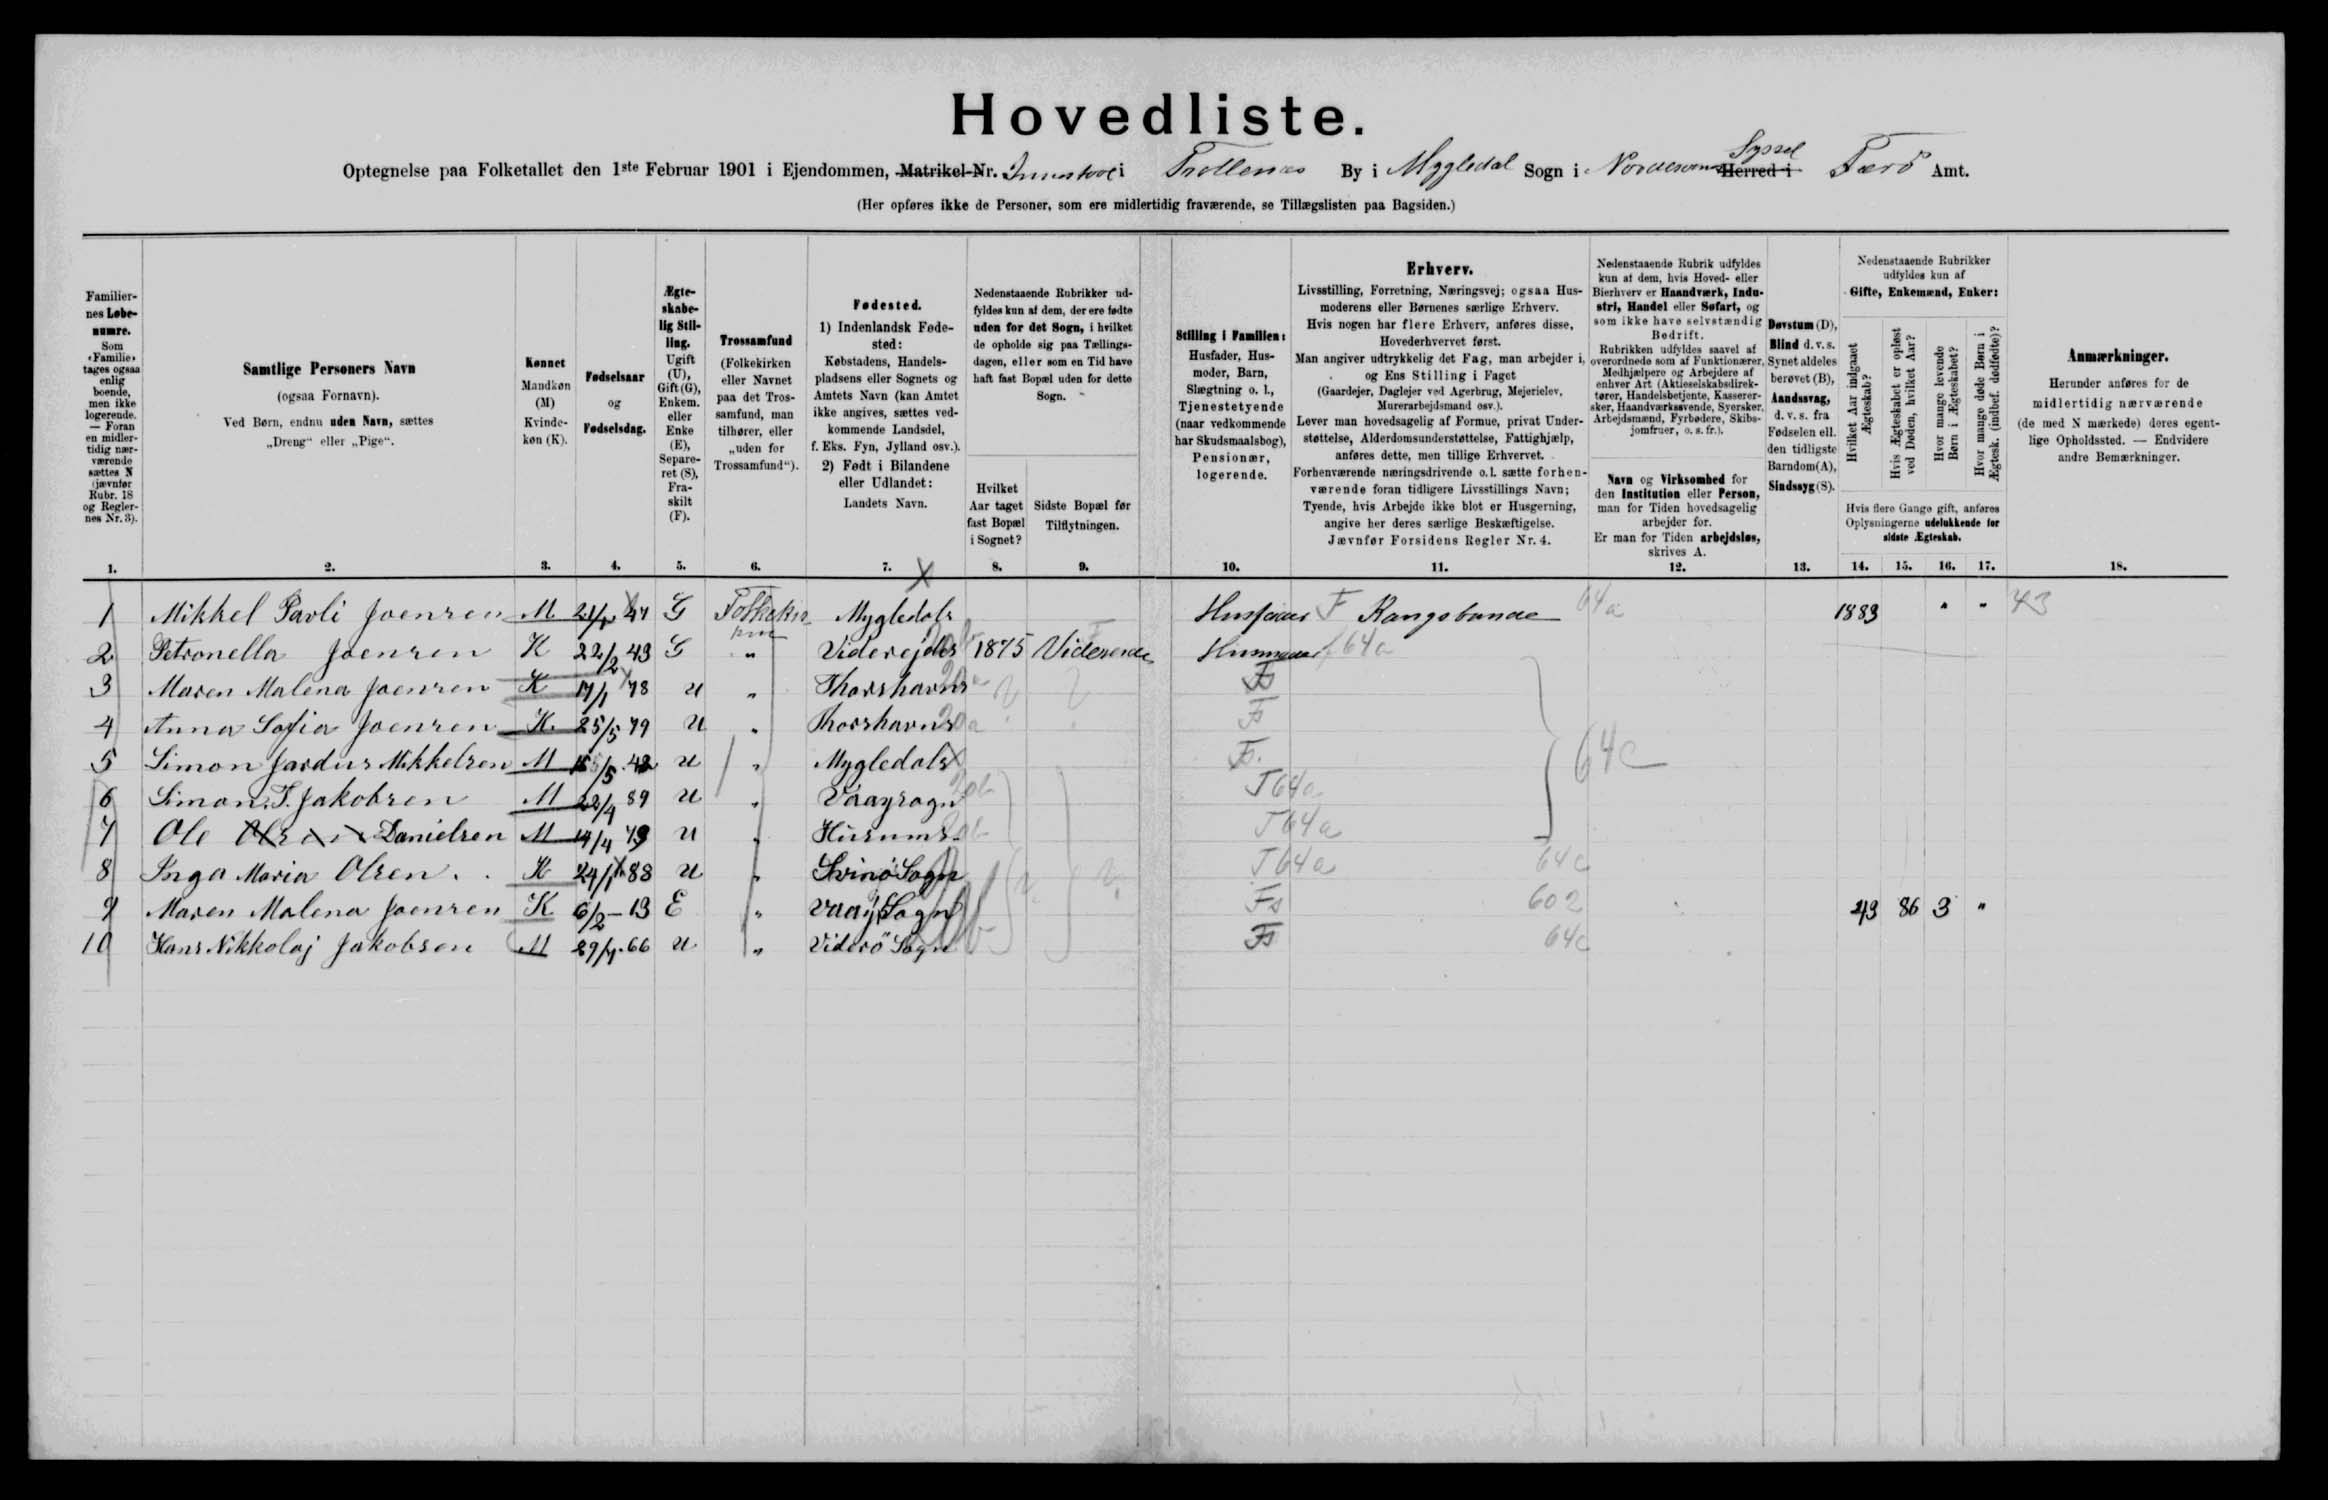 Hovedliste.
Optegnelse paa Folketallet den 1ste Februar 1901 i Ejendommen, Matrikel-Nr. Innistove i Trollenæs By i Myggledal Sogn i Norderoernes Herred i Syssel Færö Amt.
(Her opføres ikke de Personer, som ere midlertidig fraværende, se Tillægslisten paa Bagsiden.)
Familiernes Løbenumre.
Som «Familie» tages ogsaa enlig boende, men ikke logerende. — Foran en midlertidig nærværende sættes N (jævnfør Rubr. 18 og Reglernes Nr. 3).
Samtlige Personers Navn
(ogsaa Fornavn).
Ved Børn, endnu uden Navn, sættes „Dreng“ eller „Pige“.
Kønnet
Mandkøn (M)
Kvindekøn (K).
Fødselsaar
og
Fødselsdag.
Ægteskabelig Stilling.
Ugift (U), Gift (G), Enkem. eller Enke (E), Separeret (S), Fraskilt (F).
Trossamfund
(Folkekirken eller Navnet paa det Trossamfund, man tilhører, eller „uden for Trossamfund“).
Fødested.
1) Indenlandsk Fødested:
Købstadens, Handelspladsens eller Sognets og Amtets Navn (kan Amtet ikke angives, sættes vedkommende Landsdel, f. Eks. Fyn, Jylland osv.).
2) Født i Bilandene eller Udlandet:
Landets Navn.
Nedenstaaende Rubrikker udfyldes kun af dem, der ere fødte uden for det Sogn, i hvilket de opholde sig paa Tællingsdagen, eller som en Tid have haft fast Bopæl uden for dette Sogn.
Hvilket Aar taget fast Bopæl i Sognet?
Sidste Bopæl før Tilflytningen.
Stilling i Familien:
Husfader, Husmoder, Barn, Slægtning o. l., Tjenestetyende (naar vedkommende har Skudsmaalsbog), Pensionær, logerende.
Erhverv.
Livsstilling, Forretning, Næringsvej; ogsaa Husmoderens eller Børnenes særlige Erhverv.
Hvis nogen har flere Erhverv, anføres disse, Hovederhvervet først.
Man angiver udtrykkelig det Fag, man arbejder i, og Ens Stilling i Faget
(Gaardejer, Daglejer ved Agerbrug, Mejerielev, Murerarbejdsmand osv.).
Lever man hovedsagelig af Formue, privat Understøttelse, Alderdomsunderstøttelse, Fattighjælp, anføres dette, men tillige Erhvervet.
Forhenværende næringsdrivende o. l. sætte forhenværende foran tidligere Livsstillings Navn;
Tyende, hvis Arbejde ikke blot er Husgerning, angive her deres særlige Beskæftigelse.
Jævnfør Forsidens Regler Nr. 4.
Nedenstaaende Rubrik udfyldes kun af dem, hvis Hoved- eller Bierhverv er Haandværk, Industri, Handel eller Søfart, og som ikke have selvstændig Bedrift.
Rubrikken udfyldes saavel af overordnede som af Funktionærer, Medhjælpere og Arbejdere af enhver Art (Aktieselskabsdirektører, Handelsbetjente, Kasserersker, Haandværkssvende, Syersker, Arbejdsmænd, Fyrbødere, Skibsjomfruer, o. s. fr.).
Navn og Virksomhed for den Institution eller Person, man for Tiden hovedsagelig arbejder for.
Er man for Tiden arbejdsløs, skrives A.
Døvstum (D), Blind d. v. s. Synet aldeles berøvet (B), Aandssvag, d. v. s. fra Fødselen ell. den tidligste Barndom (A), Sindssyg (S).
Nedenstaaende Rubrikker udfyldes kun af Gifte, Enkemænd, Enker:
Hvilket Aar indgaaet Ægteskab?
Hvis Ægteskabet er opløst ved Døden, hvilket Aar?
Hvor mange levende Børn i Ægteskabet?
Hvor mange døde Børn i Ægtesk. (indbef. dødfødte)?
Hvis flere Gange gift, anføres Oplysningerne udelukkende for sidste Ægteskab.
Anmærkninger.
Herunder anføres for de midlertidig nærværende (de med N mærkede) deres egentlige Opholdssted. — Endvidere andre Bemærkninger.
1. 2. 3. 4. 5. 6. 7. 8. 9. 10. 11. 12. 13. 14. 15. 16. 17. 18.
1 Mikkel Pavli Joensen M 47 G Folkekirken Mygledals Husfader F Kongsbonde 64a 1883 " " 43
2 Petronella Joensen K 22/2 43 G " Viderejdes 1875 Husmoder 64a
3 Maren Malena Joensen K 17/1 78 U " Thorshavns
4 Anna Sofia Joensen K. 25/5 79 U " Thorshavns
5 Simon Jardus Mikkelsen M U " Mygledals 64c
6 Simon J. Jakobsen M 22/4 89 U " Vaagsogn T64a
7 Ole Danielsen M 14/4 U " Husums T64a
8 Inga Maria Olsen K 88 U " Svinö Sogn T64a 64c
9 Maren Malena Joensen K 6/2 - 13 E " Vaag Sogn Fs 602 43 86 3 "
10 Hans Nikkolaj Jakobsen M 66 U " Viderö Sogn 64c